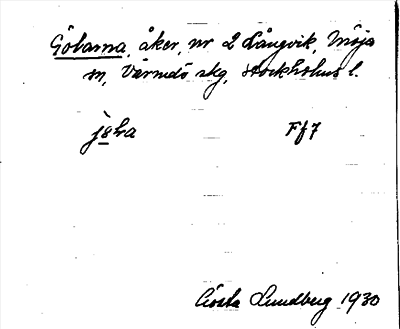 Gölarna, åker, nr 2 Långvik, Möja
sn, Värmdö skg, Stockholms l.
Ff7
Gösta Lundberg 1930